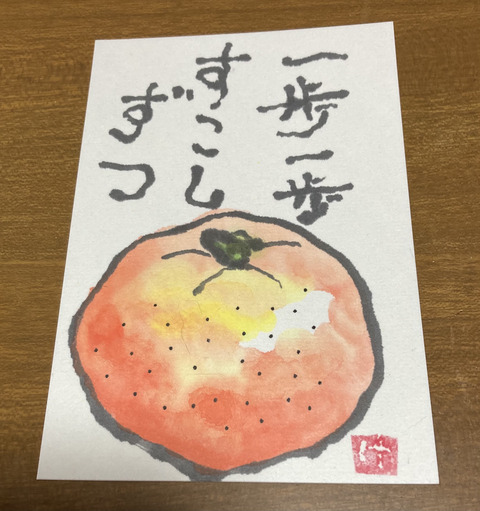 一歩一歩
すこし
ずつ